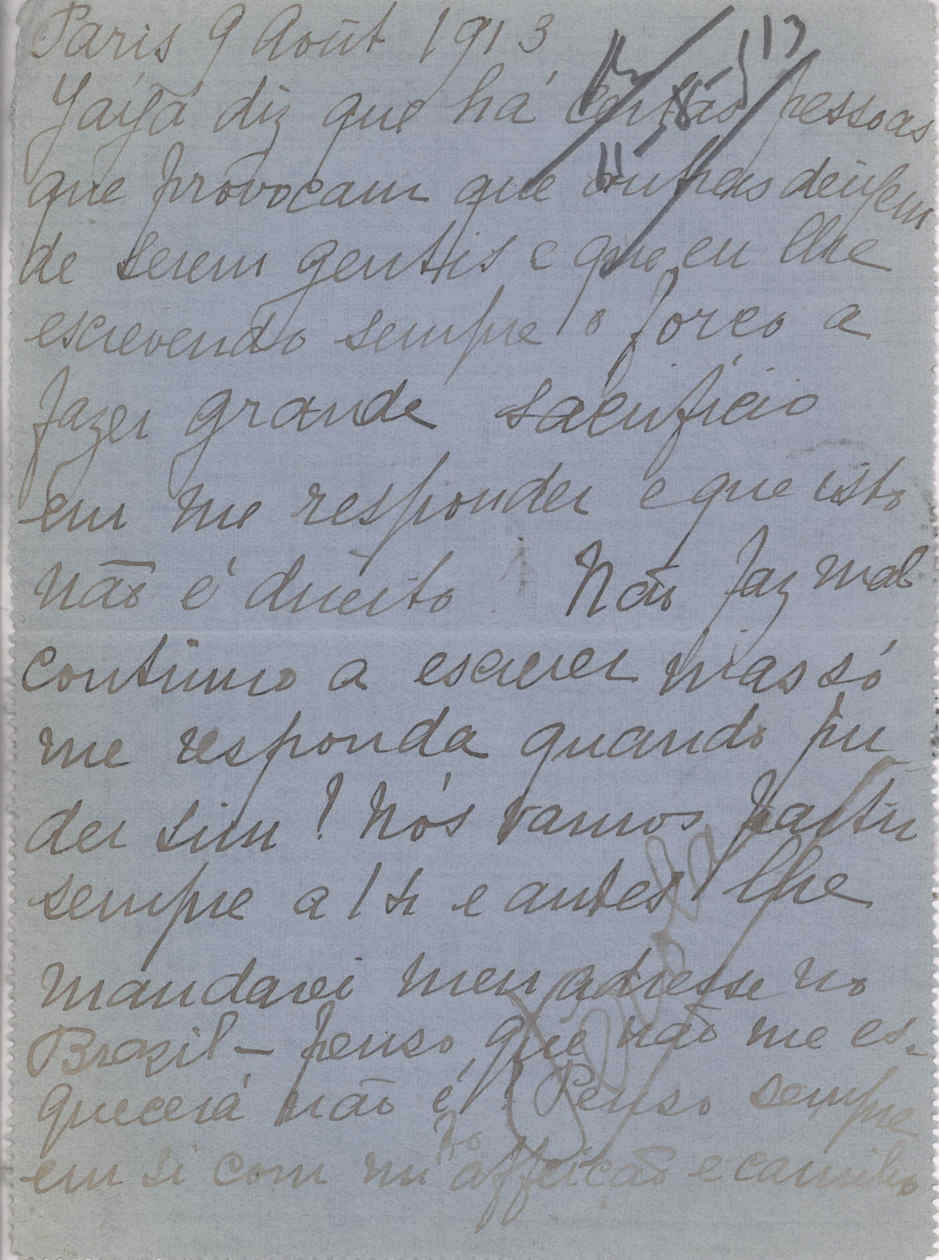 Paris 9 Août 1913
Yayá diz que há certas pessoas
que provocam que outras deixem
de serem gentis e que eu lhe
escrevendo sempre o forco a
fazer grande sacrificio
em me responder e que isto
não é direito! Não faz mal
continuo a escrever mas só
me responda quando pu
der sim! Nós vamos partir
sempre a 14 e antes lhe
mandarei meu adresse no
Brazil – penso que não me es-
quecerá não é! Penso sempre
em si com affeição e carinho